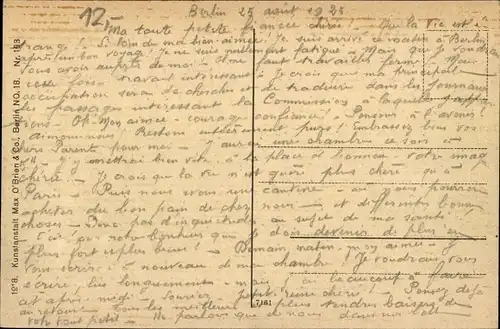 12
Berlin 25 août 1925
Ma toute petite fiancée chérie! Que la vie est é-
trange! Si loin de ma bien-aimée! Je suis arrivé ce matin à Berlin
après un bon voyage! Je ne suis nullement fatigué - Mais que je voudrais
vous avoir auprès de moi - Il me faut travailler ferme! Mais
cette fois travail intéressant - Je crois que ma principale
occupation sera de chercher et de traduire dans les journaux
les passages intéressant la Commission à laquelle j'appartiens
- Oh! Mon aimée - courage confiance! Pensons à l'avenir!
Aimons-nous! Restons entièrement purs! Embrassez bien vos
chers Parents pour moi - J'aurai une chambre ce soir à
- J'y mettrai bien vite, à la place d'honneur, votre image
chérie - Je crois que la vie n'est guère plus chère qu'à
Paris - Puis nous avons une cantine - où nous pourrons
acheter du bon pain de chez nous - et différentes bonnes
choses - Donc pas d'inquiétude au sujet de ma santé!
C'est pour notre bonheur que je dois devenir de plus en
plus fort et plus beau! - Demain matin - mon aimée - j'
vous écrirai à nouveau de ma chambre! Je voudrais vous
écrire, lire longuement - mais j'ai beaucoup à faire
cet après-midi - Souriez petite reine chérie! Pensez déjà
au retour! Tous les meilleurs et plus tendres baisers de
votre tout petit - Ne parlons que de nous dans nos
1218. Kunstanstalt Max O'Brien & Co., Berlin NO. 18. Nr. 193
7/61